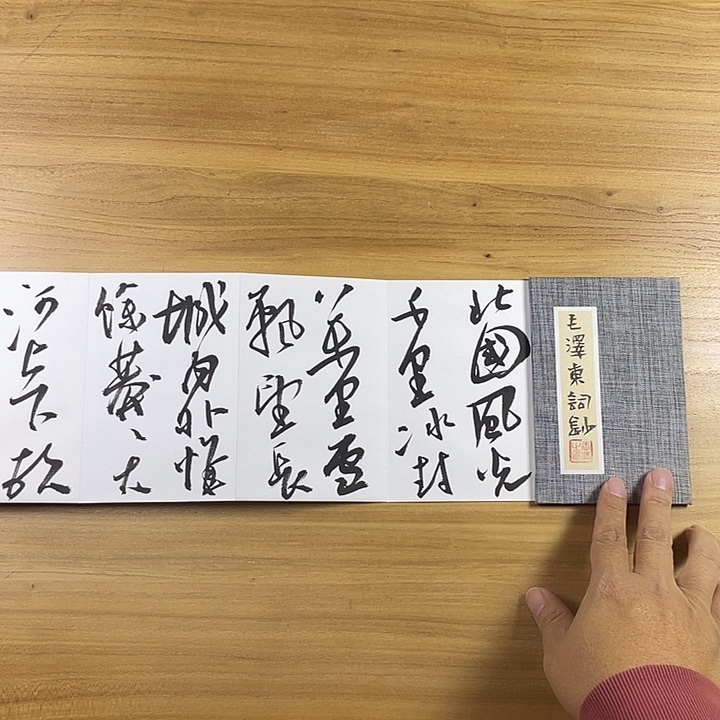 毛澤東詞鈔
北國風光
千里冰封
萬里雪
飄望長
城內外惟
餘莽〻大
河上下頓